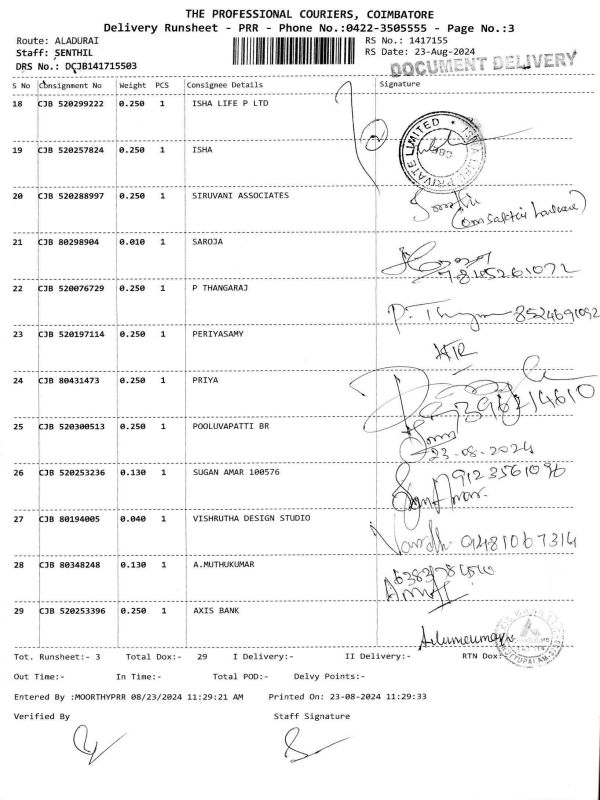 THE PROFESSIONAL COURIERS, COIMBATORE
Delivery Runsheet - PRR - Phone No.:0422-3505555 - Page No.:3
Route: ALADURAI RS No.: 1417155
Staff: SENTHIL RS Date: 23-Aug-2024
DRS No.: DCJB141715503 DOCUMENT DELIVERY
S No Consignment No Weight PCS Consignee Details Signature
18 CJB 520299222 0.250 1 ISHA LIFE P LTD
19 CJB 520257824 0.250 1 ISHA
20 CJB 520288997 0.250 1 SIRUVANI ASSOCIATES
21 CJB 80298904 0.010 1 SAROJA
22 CJB 520076729 0.250 1 P THANGARAJ
P. 8524691092
23 CJB 520197114 0.250 1 PERIYASAMY
24 CJB 80431473 0.250 1 PRIYA
25 CJB 520300513 0.250 1 POOLUVAPATTI BR
23-08-2024
26 CJB 520253236 0.130 1 SUGAN AMAR 100576
9123561096
27 CJB 80194005 0.040 1 VISHRUTHA DESIGN STUDIO
9481067314
28 CJB 80348248 0.130 1 A.MUTHUKUMAR
29 CJB 520253396 0.250 1 AXIS BANK
Tot. Runsheet:- 3 Total Dox:- 29 I Delivery:- II Delivery:- RTN Dox:
Out Time:- In Time:- Total POD:- Delvy Points:-
Entered By :MOORTHYPRR 08/23/2024 11:29:21 AM Printed On: 23-08-2024 11:29:33
Verified By Staff Signature